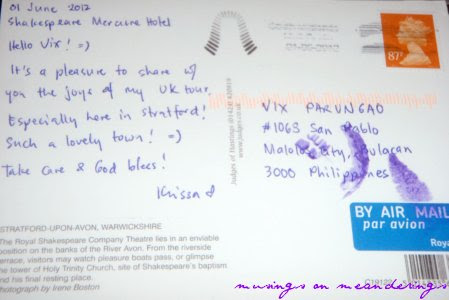 01 June 2012
Shakespeare Mercure Hotel
Hello Vix! =)
It's a pleasure to share w/
you the joys of my UK tour.
Especially here in Stratford!
Such a lovely town! =)
Take care & God bless!
Krissa
STRATFORD-UPON-AVON, WARWICKSHIRE
The Royal Shakespeare Company Theatre lies in an enviable
position on the banks of the River Avon. From the riverside
terrace, visitors may watch pleasure boats pass, or glimpse
the tower of Holy Trinity Church, site of Shakespeare's baptism
and his final resting place.
Photograph by Irene Boston
Judges of Hastings (01424) 420919
www.judges.co.uk
87P
VIX PARUNGAO
#1068 San Pablo
Malolos City, Bulacan
3000 Philippines
BY AIR MAIL
par avion
Royal
musings on meanderings